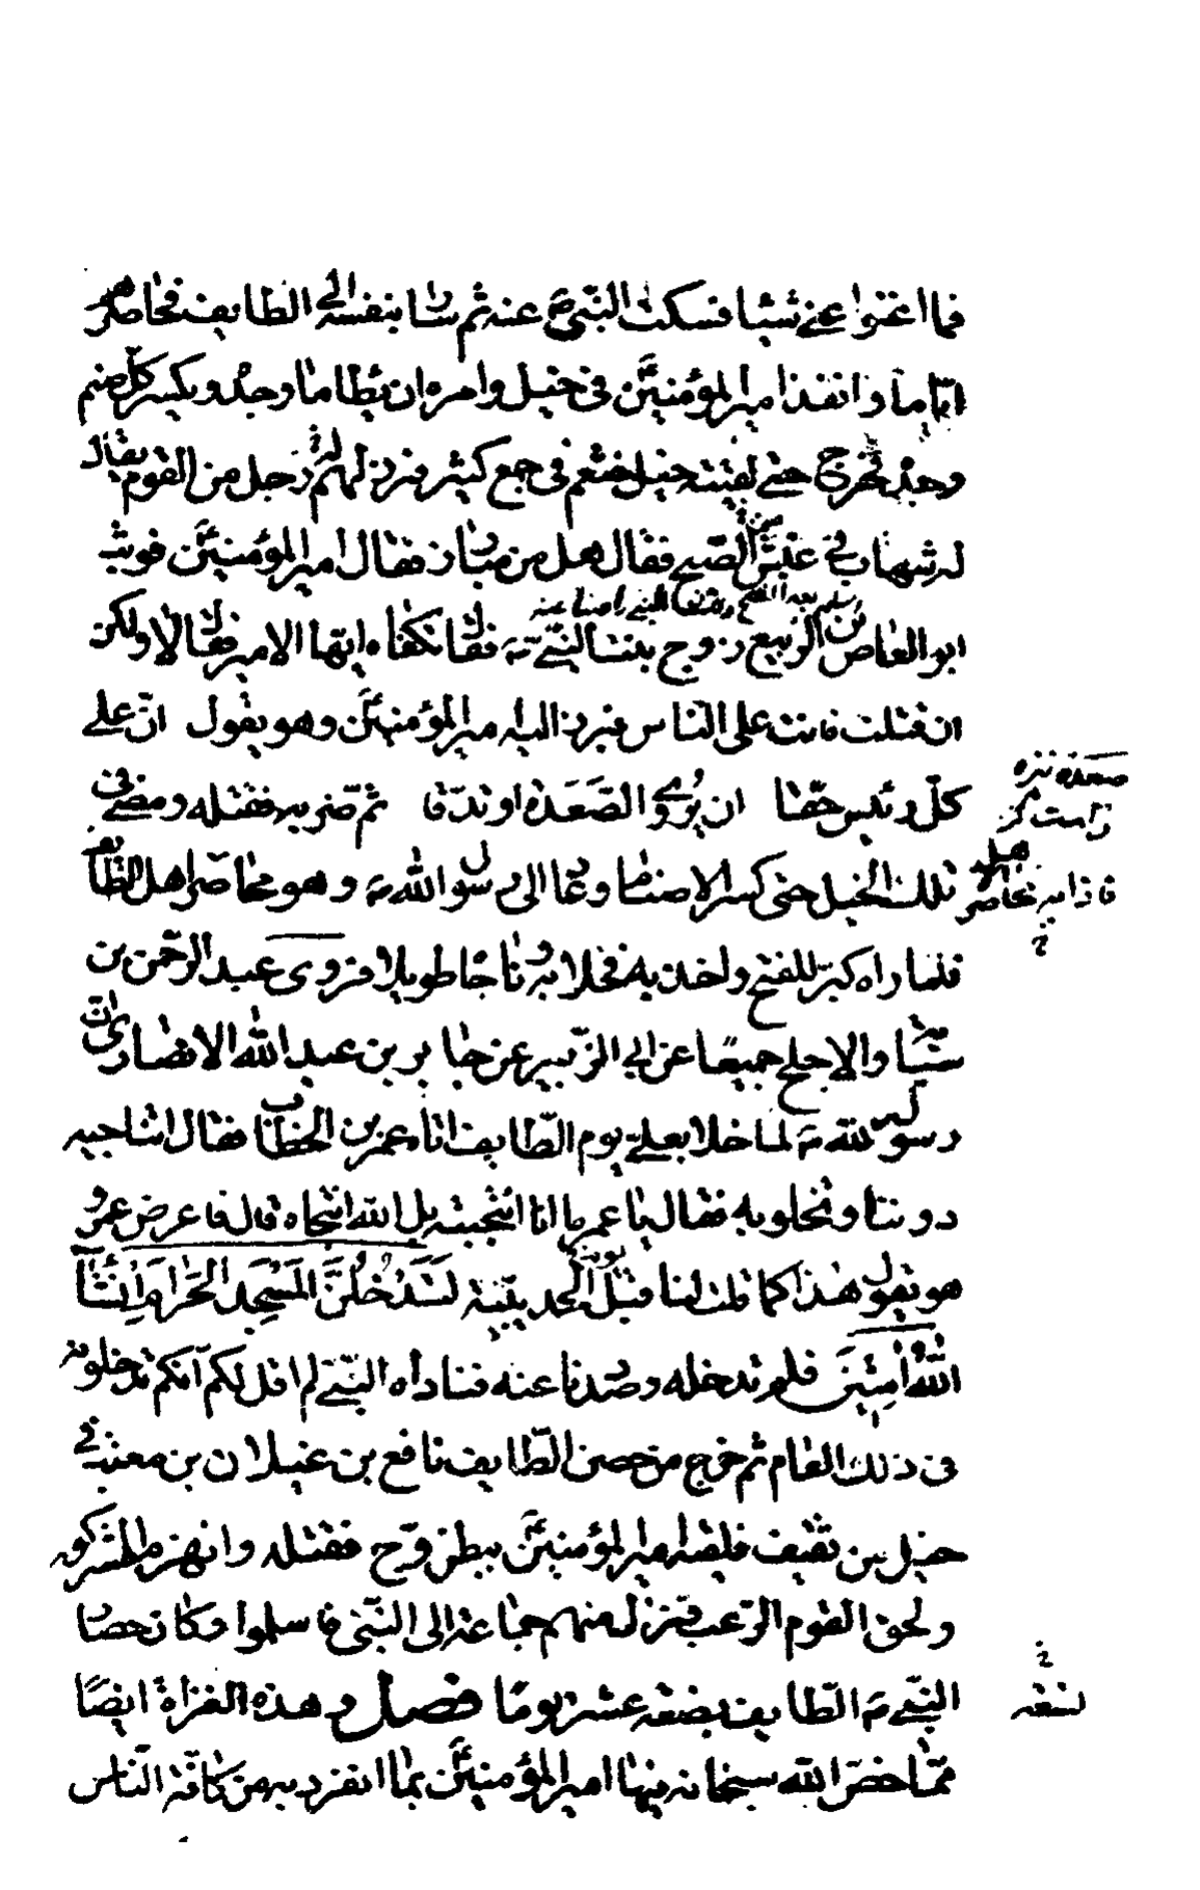 فما اغنوا عني شيئا فسكت النبي ص عنه ثم سار بنفسه الى الطايف فحاصرهم
اياما وانفذ امير المؤمنين في خيل وامره ان يطا ما وجد ويكسر كل صنم
وجده فخرج حتى لقيته خيل خثعم في جمع كثير فبرز لهم رجل من القوم يقال
له شهاب في غبش الصبح فقال هل من مبارز فقال امير المؤمنين فوثب
ابو العاص بن الربيع زوج بنت النبي فقال تكفاه ايها الامير فقال لا ولكن
ان قتلت فانت على الناس فبرز اليه امير المؤمنين وهو يقول ان على
كل رئيس حقا ان يروي الصعدة او تدقا ثم ضربه فقتله ومضى في
تلك الخيل حتى كسر الاصنام وعاد الى رسول الله وهو محاصر اهل الطايف
فلما راه كبر للفتح واخذ بيده فخلا به وناجاه طويلا فروى عبد الرحمن بن
سيابة والاجلح جميعا عن ابي الزبير عن جابر بن عبد الله الانصاري ان
رسول الله لما خلا بعلي يوم الطايف اتاه عمر بن الخطاب فقال اتناجيه
دوننا وتخلو به فقال يا عمر ما انا انتجيته بل الله انتجاه قال فاعرض عمر و
هو يقول هذا كما قلت لنا قبل الحديبية لَتَدْخُلُنَّ الْمَسْجِدَ الْحَرَامَ اِنْ شَاءَ
اللهُ اٰمِنِينَ فلم ندخله وصددنا عنه فناداه النبي لم اقل لكم انكم تدخلونه
في ذلك العام ثم خرج من حصن الطايف نافع بن غيلان بن معتب في
خيل من ثقيف فلقيه امير المؤمنين ببطن وج فقتله وانهزم المشركون
ولحق القوم الرعب فنزل منهم جماعة الى النبي فاسلموا وكان حصار
النبي الطايف بضعة عشر يوما فصل وهذه الغزاة ايضا
مما خص الله سبحانه فيها امير المؤمنين بما انفرد به من كافة الناس
صعده نيزه
راست
فاذا هو محاصر